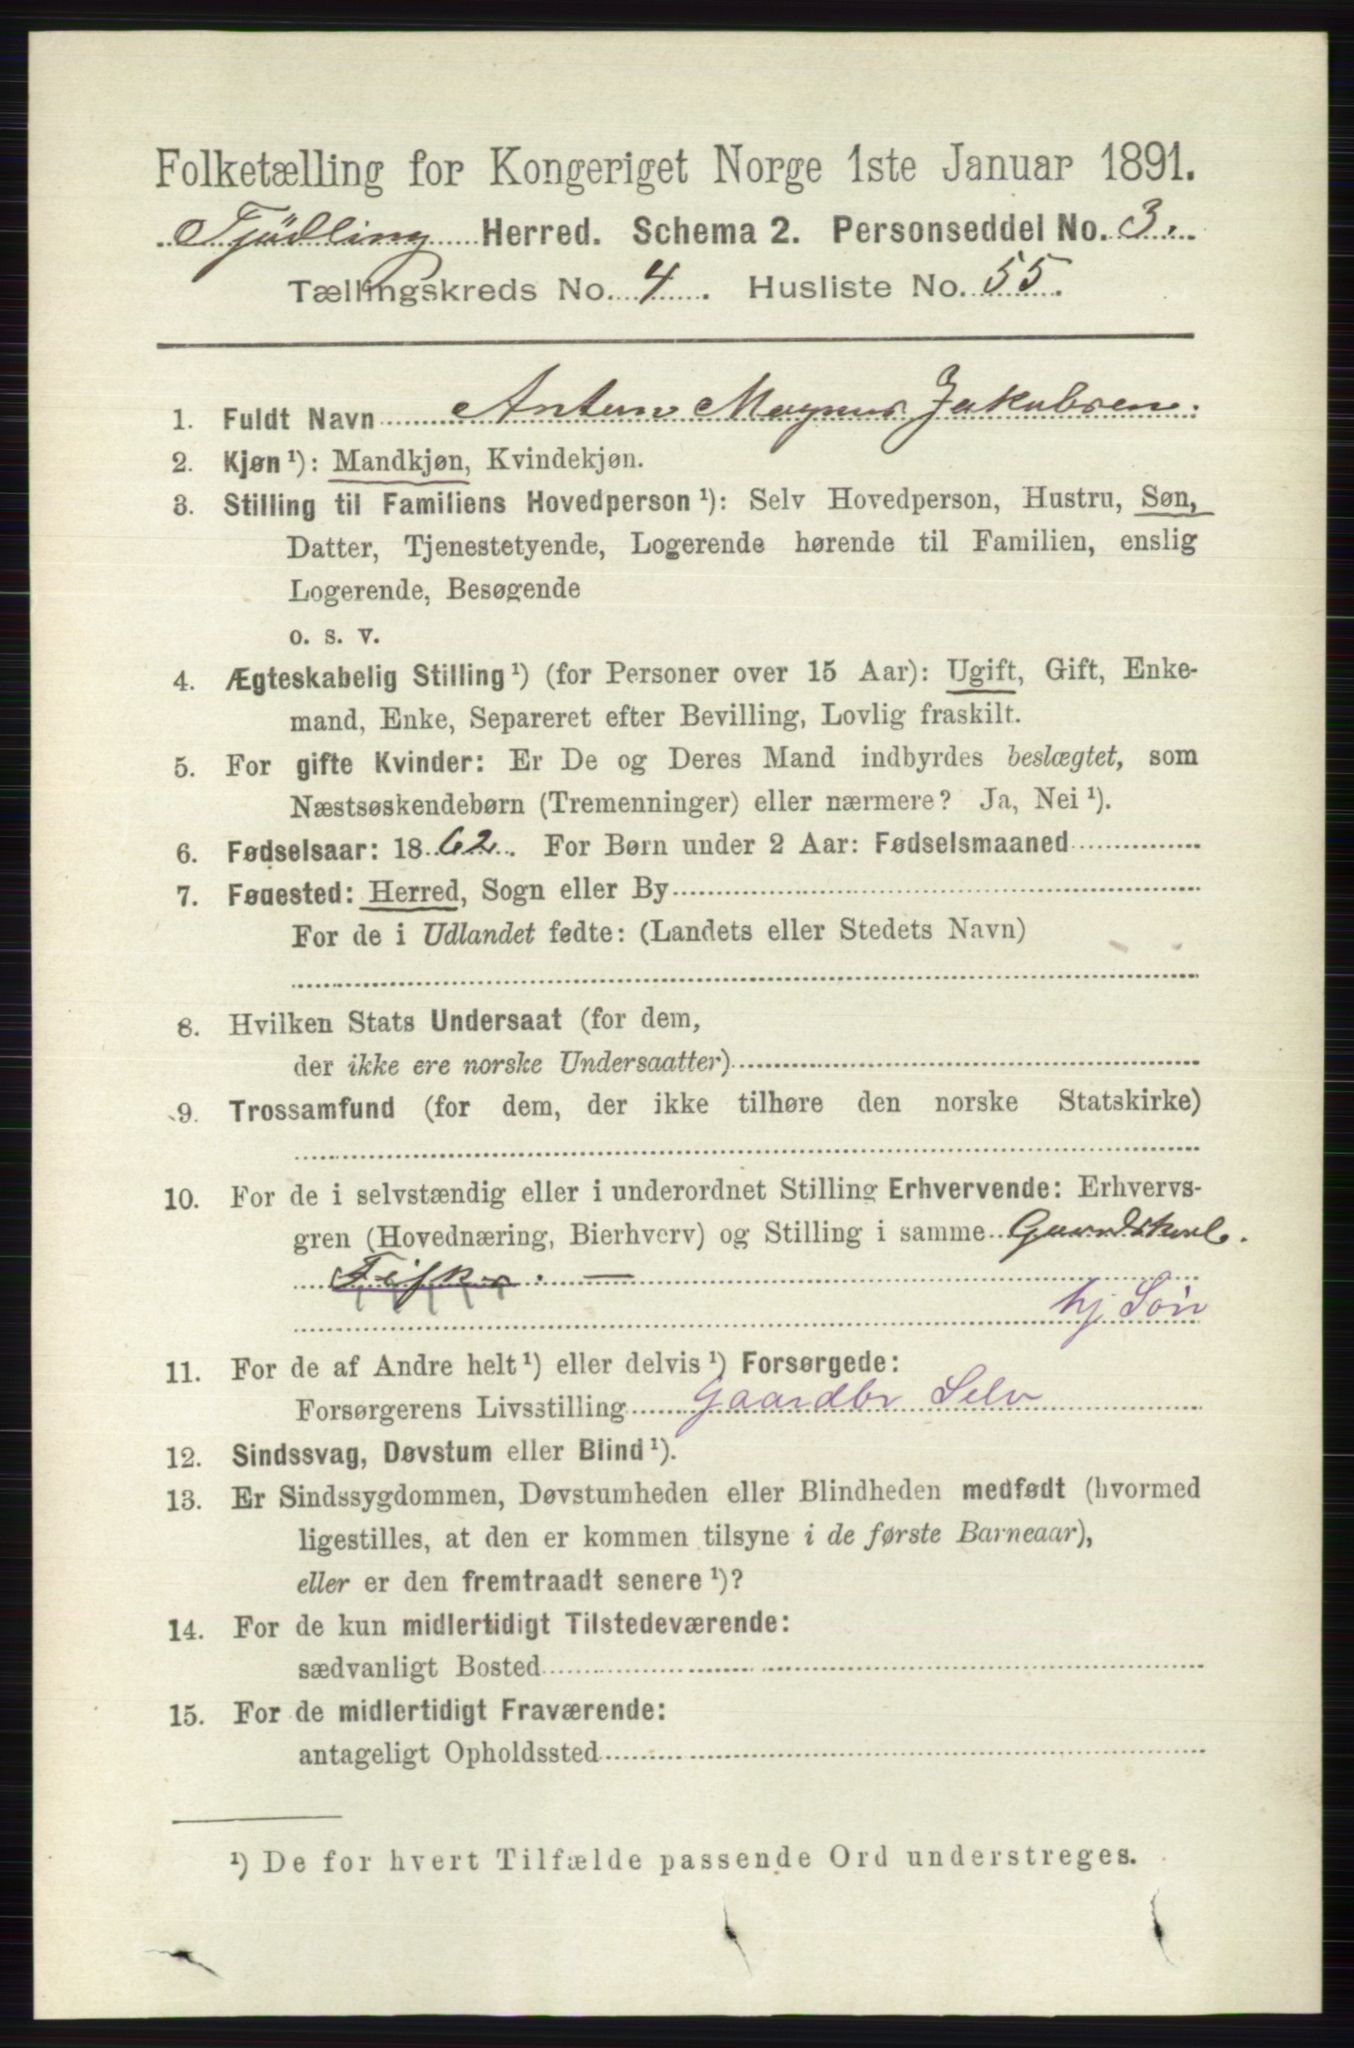 Folketælling for Kongeriget Norge 1ste Januar 1891.
Tjødling Herred. Schema 2. Personseddel No. 3.
Tællingskreds No. 4. Husliste No. 55.
1. Fuldt Navn Anton Magnus Jakobsen.
2. Kjøn ¹): Mandkjøn, Kvindekjøn.
3. Stilling til Familiens Hovedperson ¹): Selv Hovedperson, Hustru, Søn,
Datter, Tjenestetyende, Logerende hørende til Familien, enslig
Logerende, Besøgende
o. s. v.
4. Ægteskabelig Stilling ¹) (for Personer over 15 Aar): Ugift, Gift, Enke-
mand, Enke, Separeret efter Bevilling, Lovlig fraskilt.
5. For gifte Kvinder: Er De og Deres Mand indbyrdes beslægtet, som
Næstsøskendebørn (Tremenninger) eller nærmere? Ja, Nei ¹).
6. Fødselsaar: 1862. For Børn under 2 Aar: Fødselsmaaned
7. Føuested: Herred, Sogn eller By
For de i Udlandet fødte: (Landets eller Stedets Navn)
8. Hvilken Stats Undersaat (for dem,
der ikke ere norske Undersaatter)
9. Trossamfund (for dem, der ikke tilhøre den norske Statskirke)
10. For de i selvstændig eller i underordnet Stilling Erhvervende: Erhvervs-
gren (Hovednæring, Bierhverv) og Stilling i samme Gaardskarl.
Fisker. —
hj. Søn
11. For de af Andre helt ¹) eller delvis ¹) Forsørgede:
Forsørgerens Livsstilling Gaardbr Selv
12. Sindssvag, Døvstum eller Blind ¹).
13. Er Sindssygdommen, Døvstumheden eller Blindheden medfødt (hvormed
ligestilles, at den er kommen tilsyne i de første Barneaar),
eller er den fremtraadt senere ¹)?
14. For de kun midlertidigt Tilstedeværende:
sædvanligt Bosted
15. For de midlertidigt Fraværende:
antageligt Opholdssted
¹) De for hvert Tilfælde passende Ord understreges.